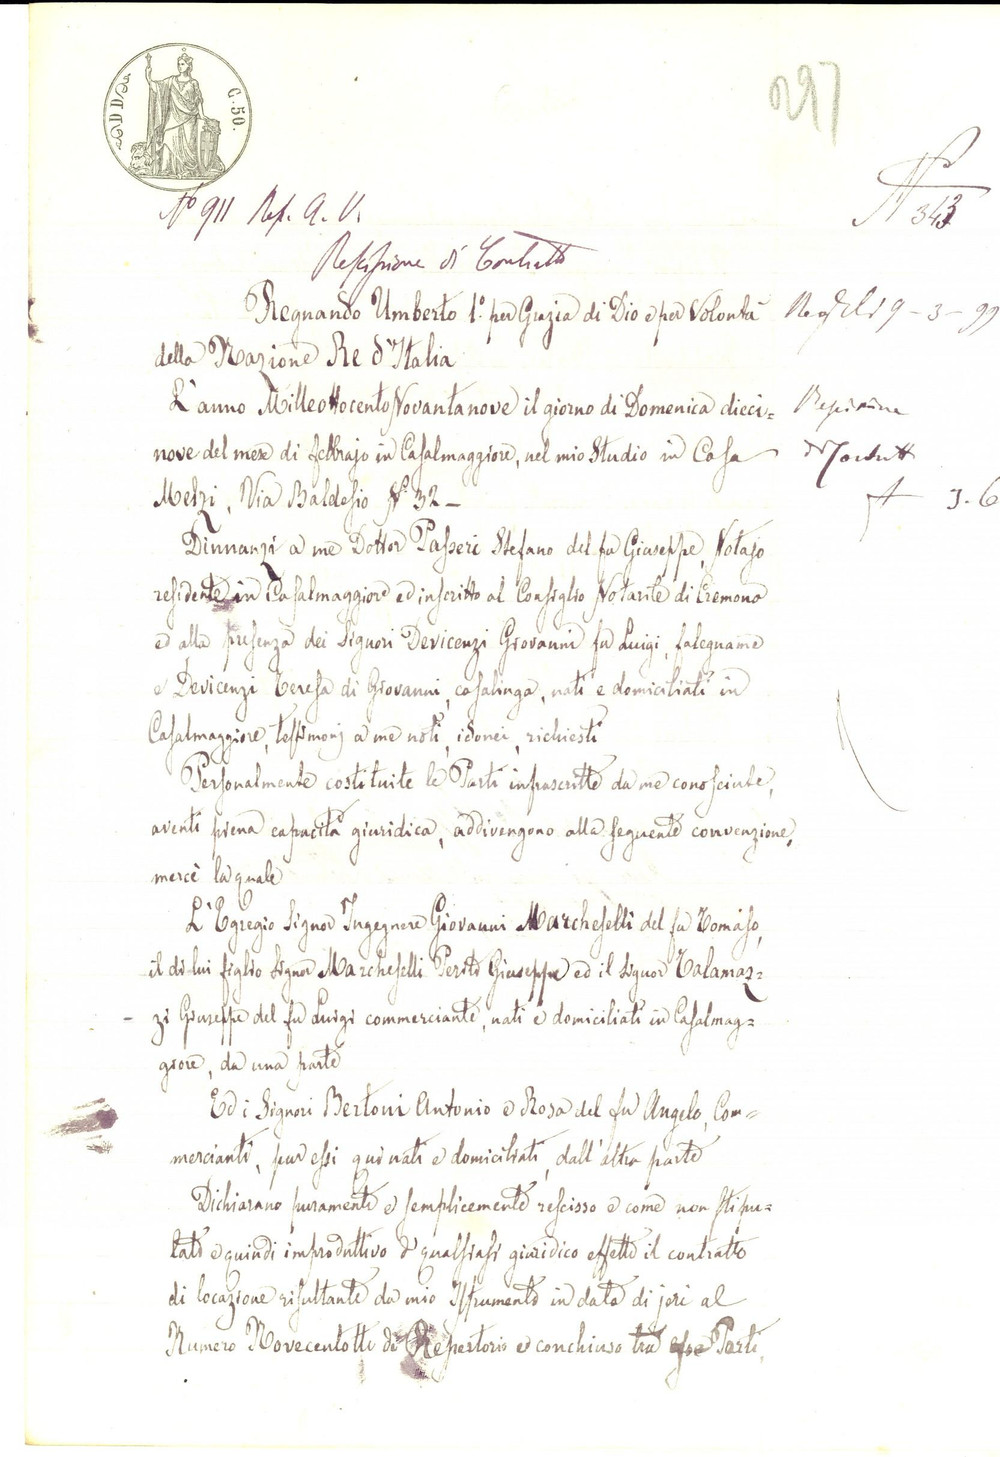 C. 50.
297
N° 911 Rep. A. V.
N 343
Rescissione di Contratto
Regnando Umberto 1.° per Grazia di Dio e per Volontà
della Nazione Re d'Italia
Reg. 9-3-99
L'anno Milleottocento Novantanove il giorno di Domenica dieci=
nove del mese di febbrajo in Casalmaggiore, nel mio Studio in Casa
Melzi, Via Baldesio N° 32 –
Rescissione
di Contratto
3.6
Dinnanzi a me Dottor Passeri Stefano del fu Giuseppe, Notajo
residente in Casalmaggiore ed inscritto al Consiglio Notarile di Cremona
ed alla presenza dei Signori Devicenzi Giovanni fu Luigi, falegname
e Devicenzi Teresa di Giovanni, casalinga, nati e domiciliati in
Casalmaggiore, testimonj a me noti, idonei, richiesti
Personalmente costituite le Parti infrascritte da me conosciute,
aventi piena capacità giuridica, addivengono alla seguente convenzione,
mercè la quale
L'Egregio Signor Ingegnere Giovanni Marcheselli del fu Tomaso,
il di lui figlio Signor Marcheselli Perito Giuseppe ed il Signor Talamaz=
zi Giuseppe del fu Luigi commerciante, nati e domiciliati in Casalmag=
giore, da una parte
Ed i Signori Bertoni Antonio e Rosa del fu Angelo, Com=
mercianti, pur essi qui nati e domiciliati, dall'altra parte
Dichiarano puramente e semplicemente rescisso e come non stipu=
lato e quindi improduttivo d'qualsiasi giuridico effetto il contratto
di locazione risultante da mio Istrumento in data di jeri al
Numero Novecentotto di Repertorio e conchiuso tra esse Parti,